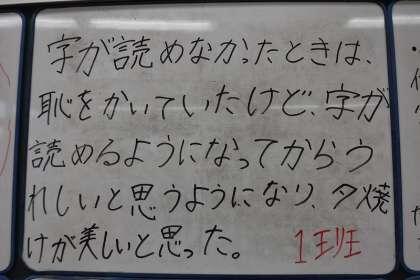 字が読めなかったときは、
恥をかいていたけど、字が
読めるようになってからう
れしいと思うようになり、夕焼
けが美しいと思った。
1班